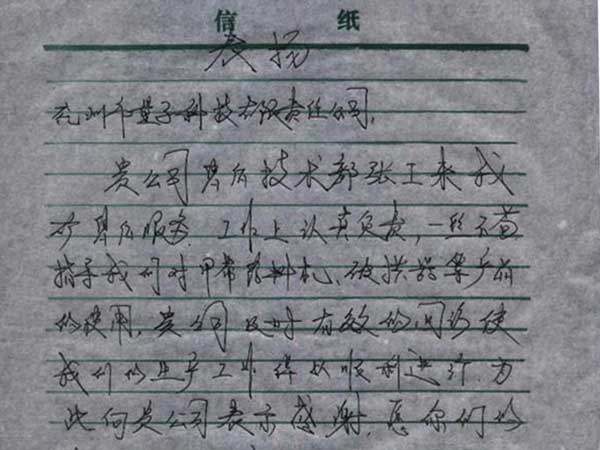 信 纸
表扬
兖州市量子科技有限责任公司,
贵公司售后技术部张工来我
矿售后服务,工作上认真负责,一丝不苟
指导我们对甲带给料机、破拱器等产品
的使用,贵公司及时有效的回访使
我们的生产工作得以顺利进行,为
此向贵公司表示感谢,愿你们的